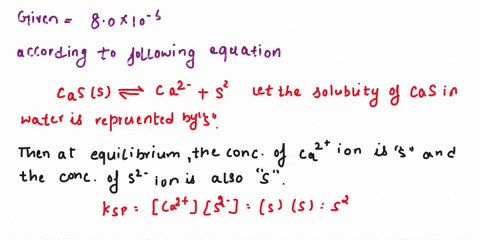 Given = 8.0×10⁻⁵
according to following equation
CaS(s) ⇌ Ca²⁻ + S² let the solublity of CaS in
water is reprented by "s".
Then at equilibrium, the conc. of Ca²⁺ ion is "s" and
the conc. of S²⁻ ion is also "s".
Ksp = [Ca²⁺] [S²⁻] = (s) (s) = s²